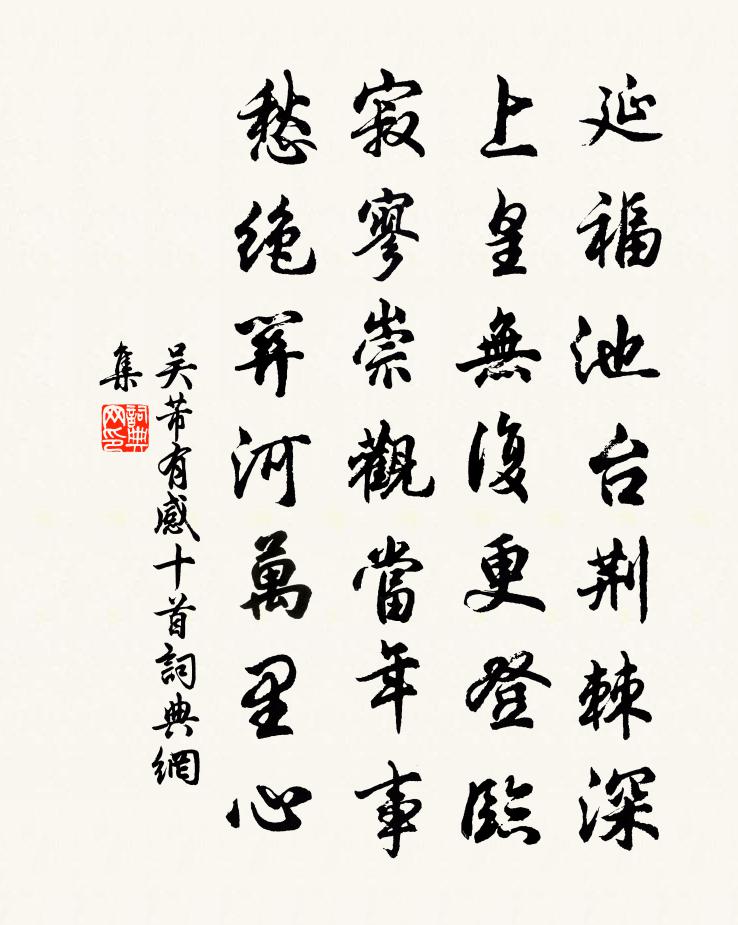 延福池台荆棘深
上皇無復更登臨
寂寥崇觀當年事
愁绝關河萬里心
吴芾有感十首詞典網
集
詞典网印